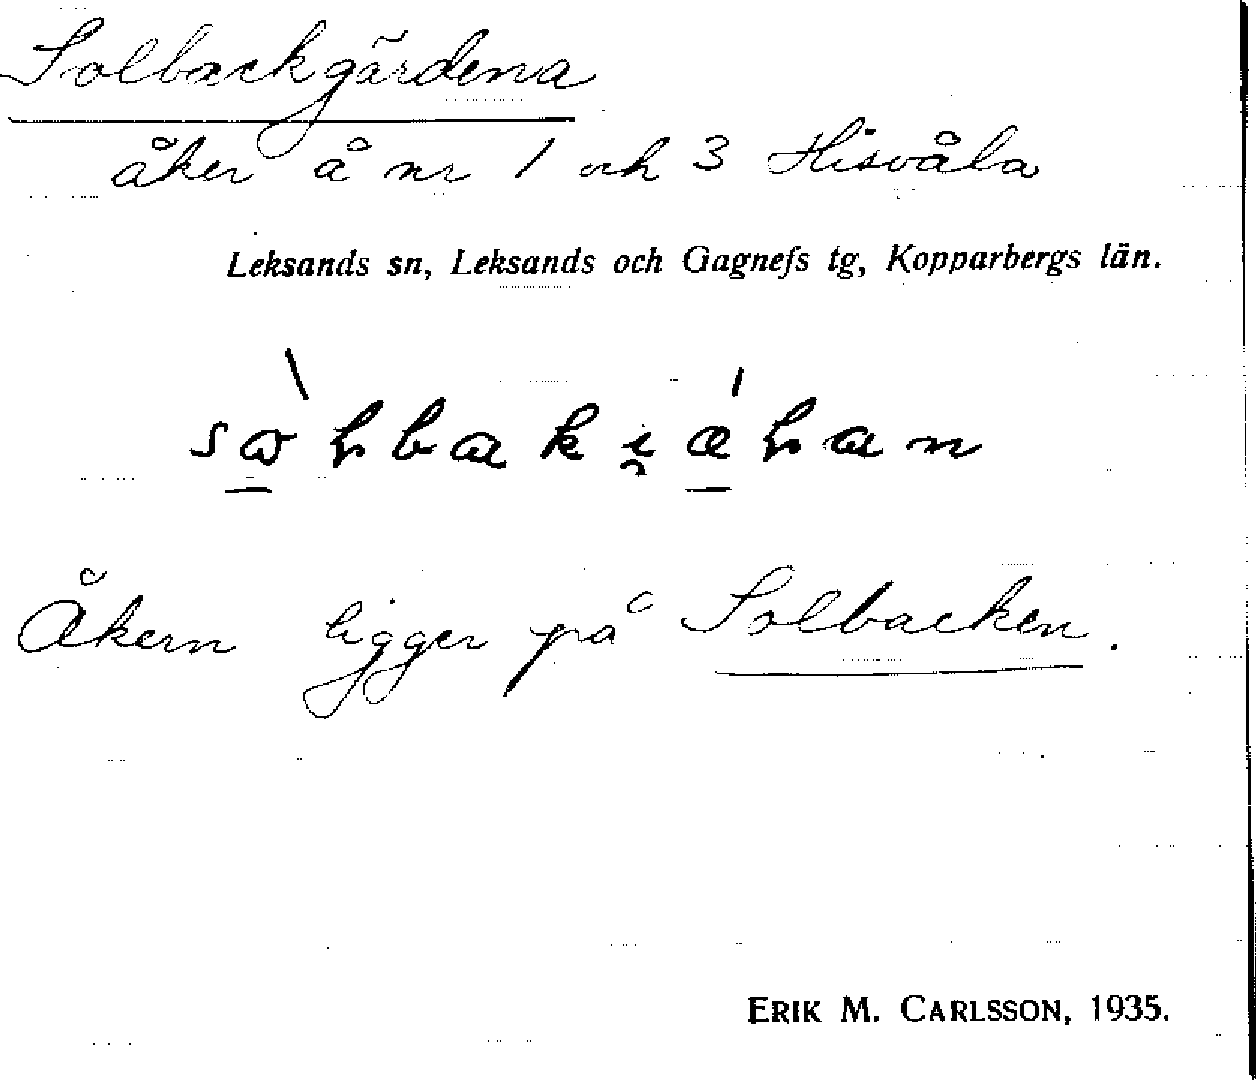 Solbackgärdena
åker å nr 1 och 3 Hisvåla
Leksands sn, Leksands och Gagnefs tg, Kopparbergs län.
Åkern ligger på Solbacken.
ERIK M. CARLSSON, 1935.